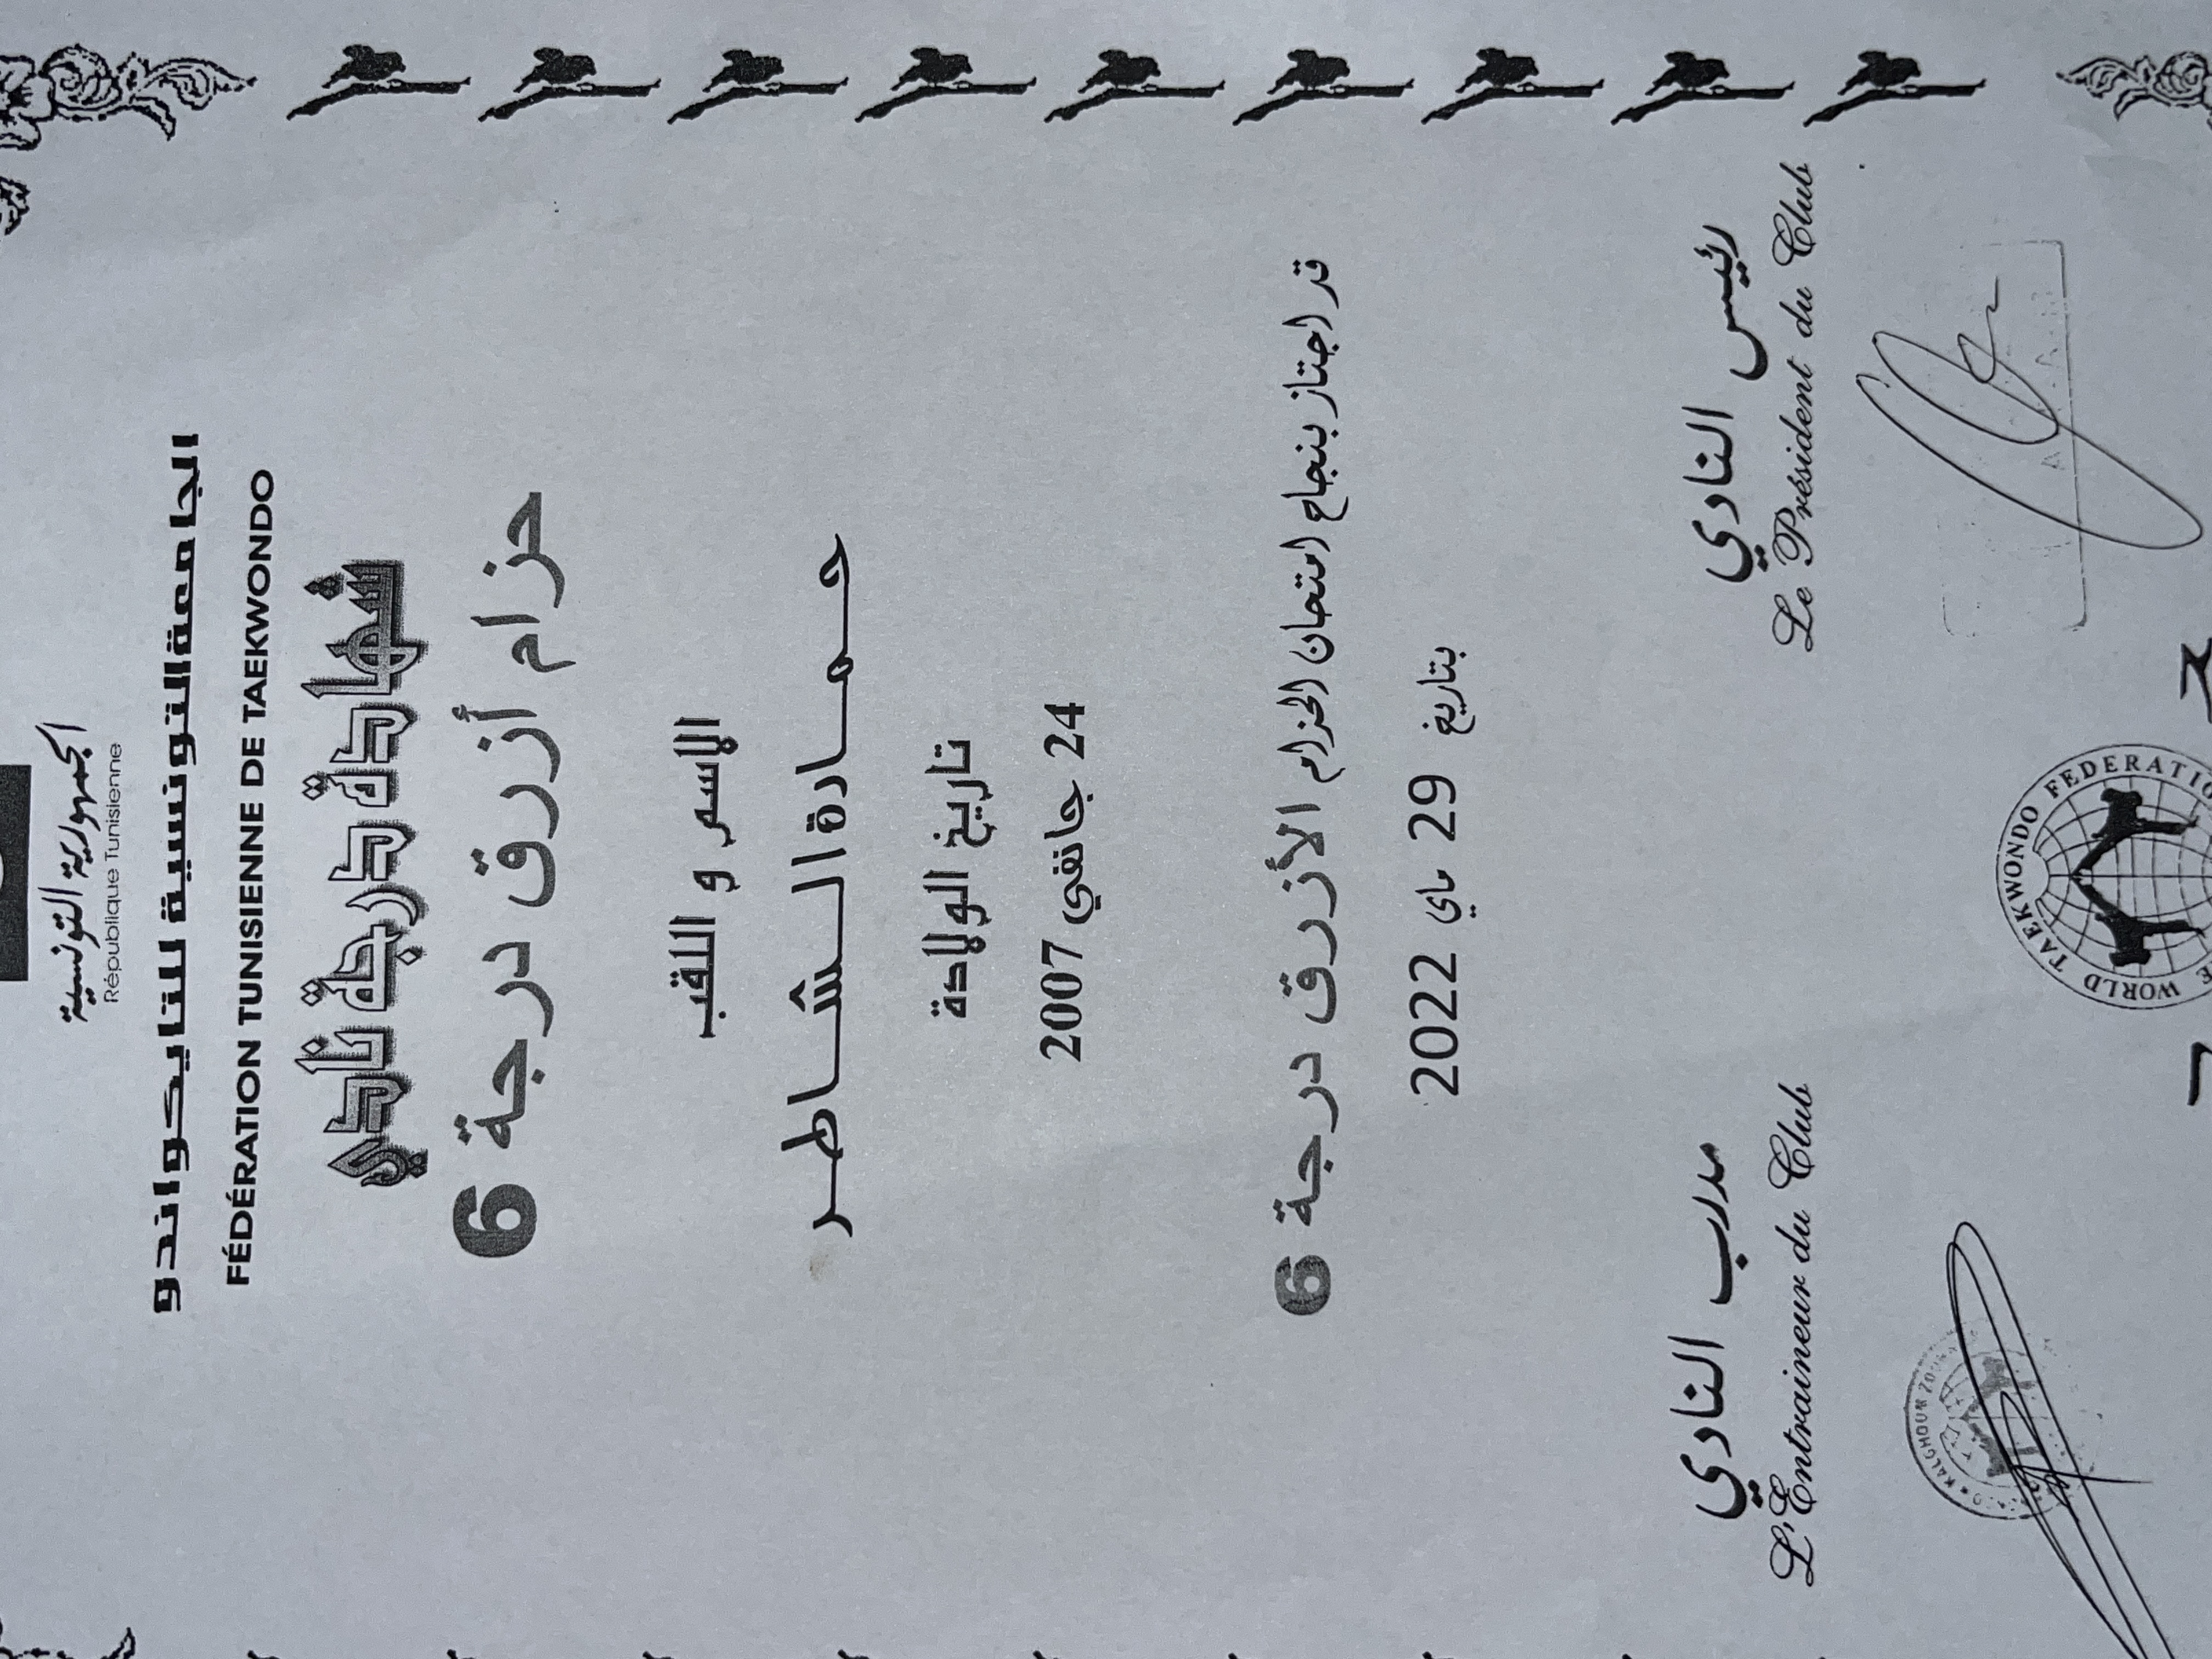 الجمهورية التونسية
République Tunisienne
الجامعة التونسية للتايكواندو
FÉDÉRATION TUNISIENNE DE TAEKWONDO
شهادة درجة نادي
حزام أزرق درجة 6
الاسم و اللقب
حمادة الشاطر
تاريخ الولادة
24 جانفي 2007
قد اجتاز بنجاح امتحان الحزام الأزرق درجة 6
بتاريخ 29 ماي 2022
رئيس النادي
Le Président du Club
مدرب النادي
L'Entraineur du Club
WORLD TAEKWONDO
KALGHOUM